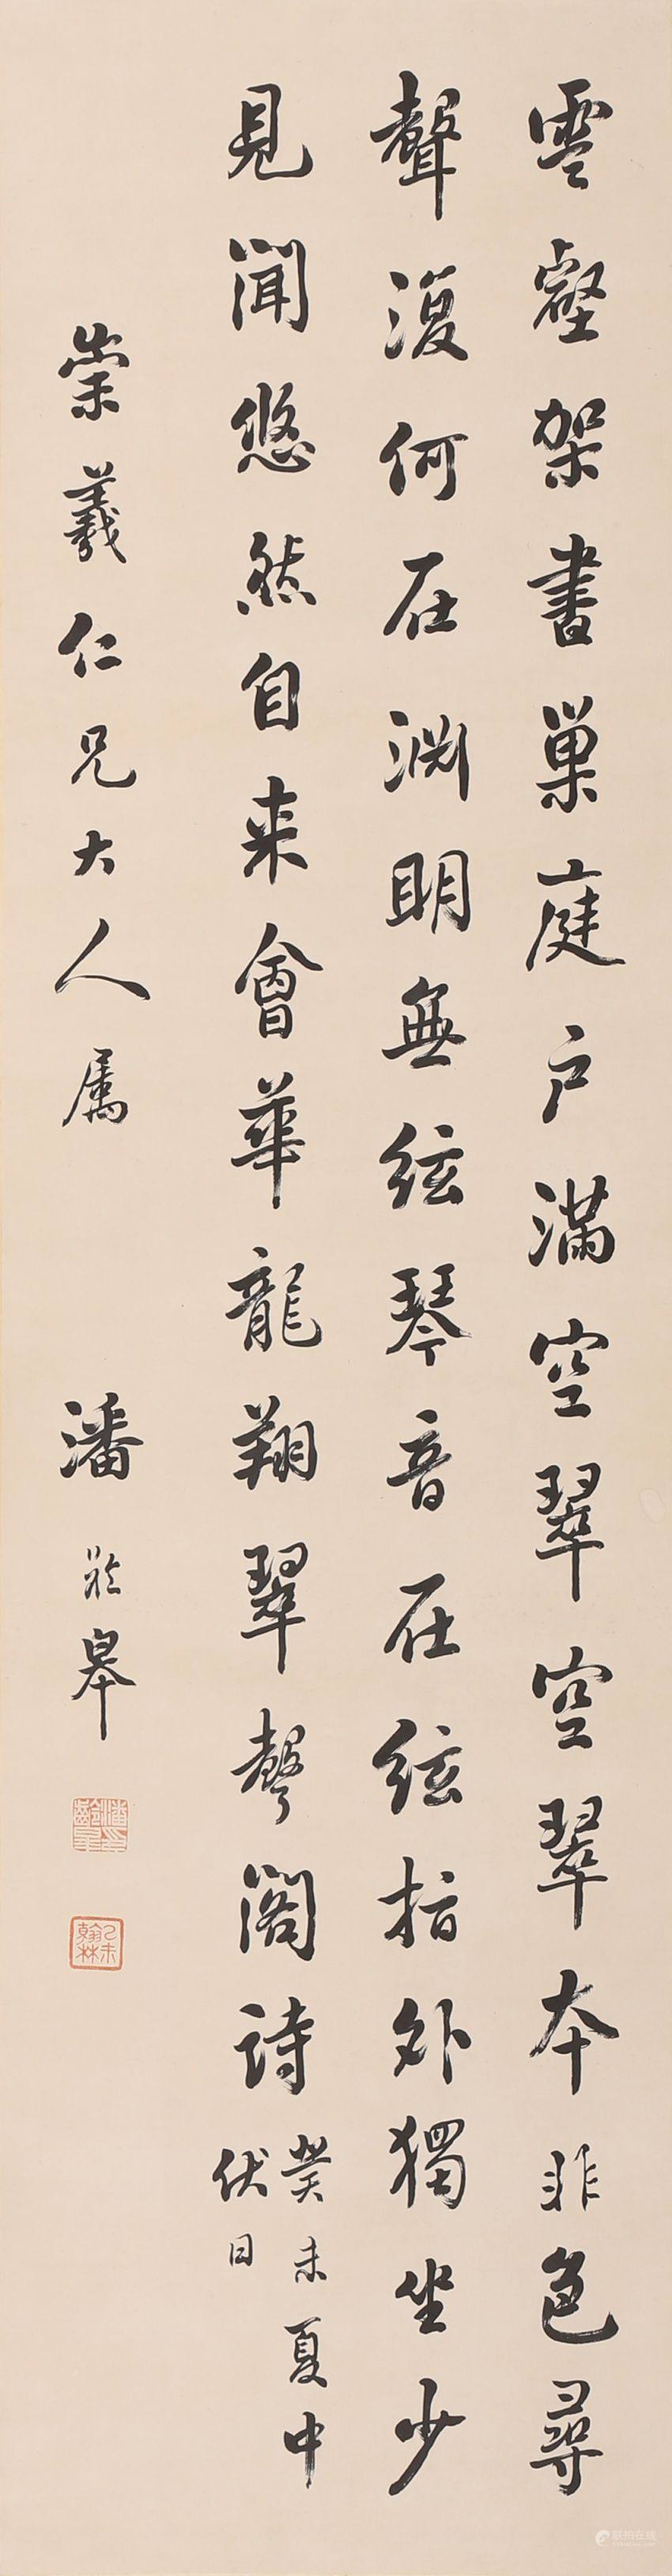 雲壑架書巢庭戶滿空翠空翠本非色尋
聲復何在淵明無絃琴音在絃指外獨坐少
見聞悠然自來會華龍翔翠聲閣詩
癸未夏中
伏日
崇義仁兄大人屬
潘齡皋
潘齡皋
乙未翰林